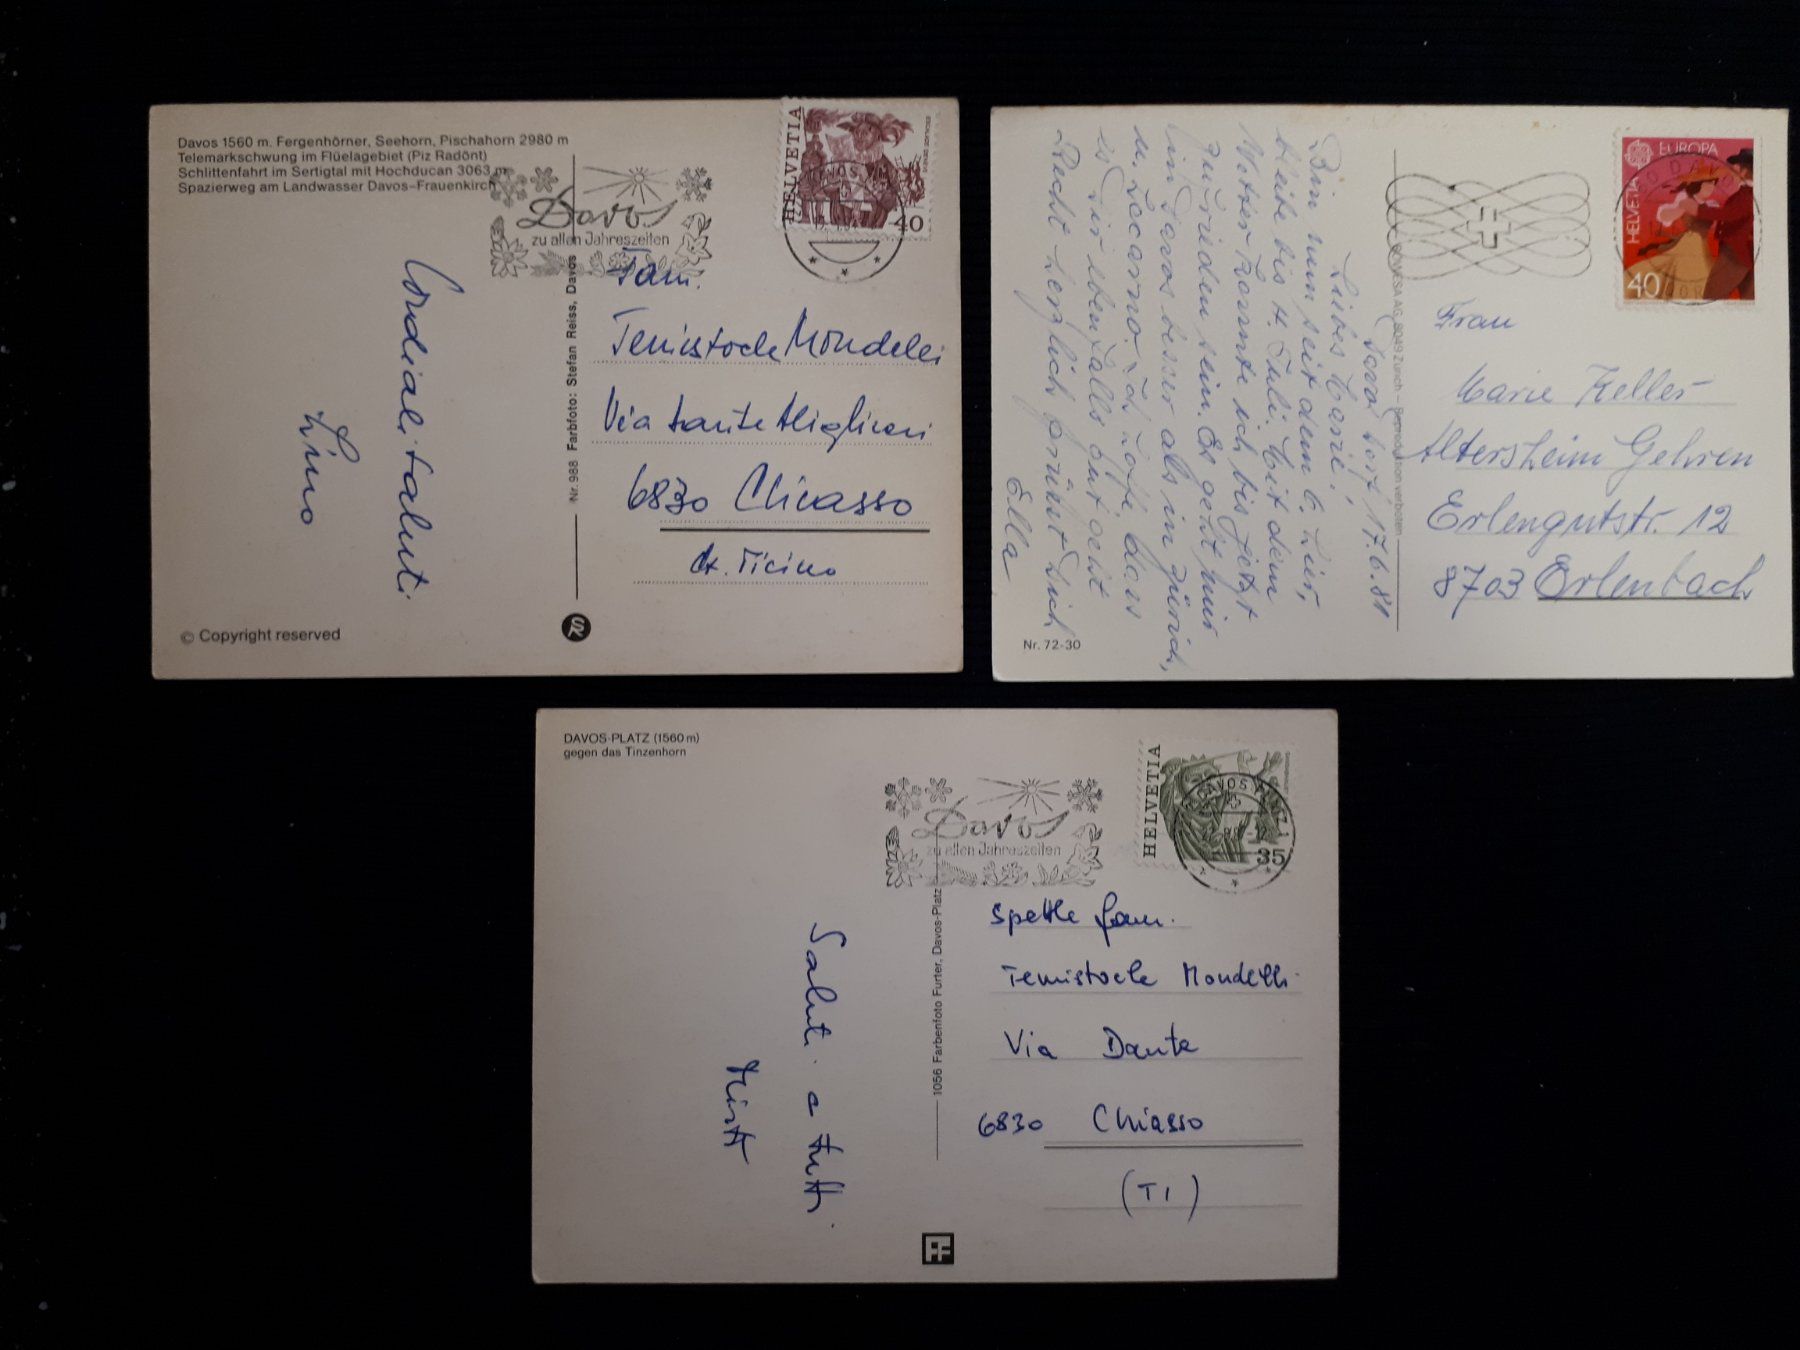 Davos 1560 m. Fergenhörner, Seehorn, Pischahorn 2980 m
Telemarkschwung im Flüelagebiet (Piz Radönt)
Schlittenfahrt im Sertigtal mit Hochducan 3063 m
Spazierweg am Landwasser Davos-Frauenkirch
Davos
zu allen Jahreszeiten
HELVETIA
40
Cordiali saluti
Lino
Nr. 988 Farbfoto: Stefan Reiss, Davos
Fam.
Temistocle Mondelli
Via Dante Alighieri
6830 Chiasso
Ct. Ticino
© Copyright reserved
Davos Dorf, 17.6.81
Liebes Marie!
Bin nun seit dem 6. hier,
bleibe bis 4. Juli. Mit dem
Wetter konnte ich bis jetzt
zufrieden sein. Es geht mir
in Davos besser als in Zürich,
u. Locarno. Ich hoffe dass
es Dir ebenfalls gut geht
Recht herzlich grüsst Dich
Ella
Nr. 72-30
Reproduktion verboten
EUROPA
HELVETIA
40
Frau
Marie Keller
Altersheim Gehren
Erlengutstr. 12
8703 Erlenbach
DAVOS-PLATZ (1560 m)
gegen das Tinzenhorn
Davos
zu allen Jahreszeiten
HELVETIA
35
Saluti a tutti.
1056 Farbenfoto Furter, Davos-Platz
Spettle fam.
Temistocle Mondelli
Via Dante
6830 Chiasso
(TI)
FF